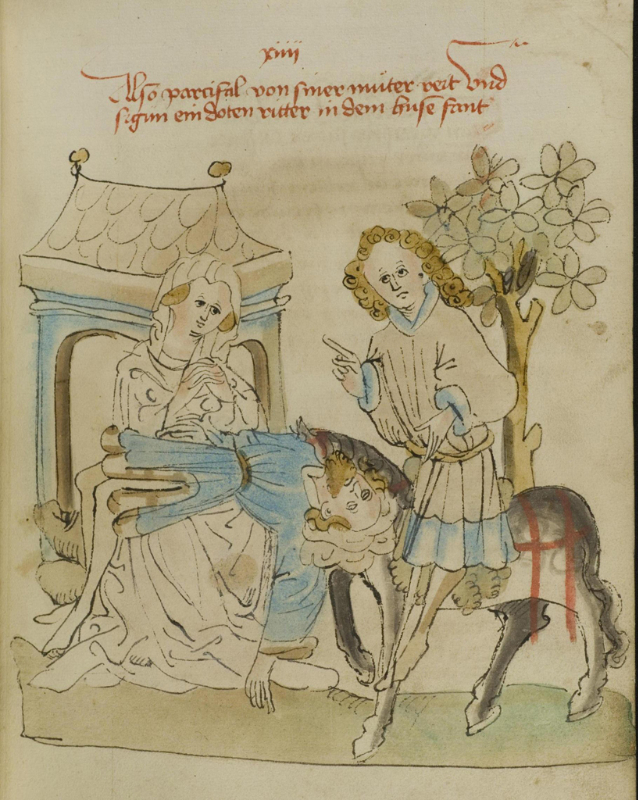 xiiii
Also parcifal von siner muter reit Und
sigun ein doten ritter in dem huse fant